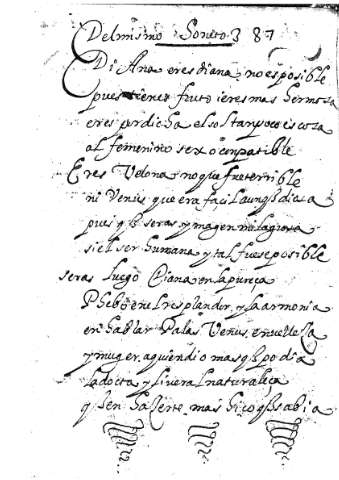 Del mismo Soneto 387
Di Ana eres diana, no es posible
pues tienes fruto i eres mas hermosa
eres por dicha el sol tanpoco es cosa
al femenino sexo conpatible
Eres Velona no que fue terrible
ni Venus que era facil aunq diosa
pues q seras ymagen milagrosa
si el ser humana y tal fuese posible
seras luego Diana en la pureça
Phebo en el resplandor, y la armonia
en hablar Palas Venus, en velleça
y muger, a quien dio mas q podia
la docta y liveral naturaleça
q en haserte mas hiço q sabia